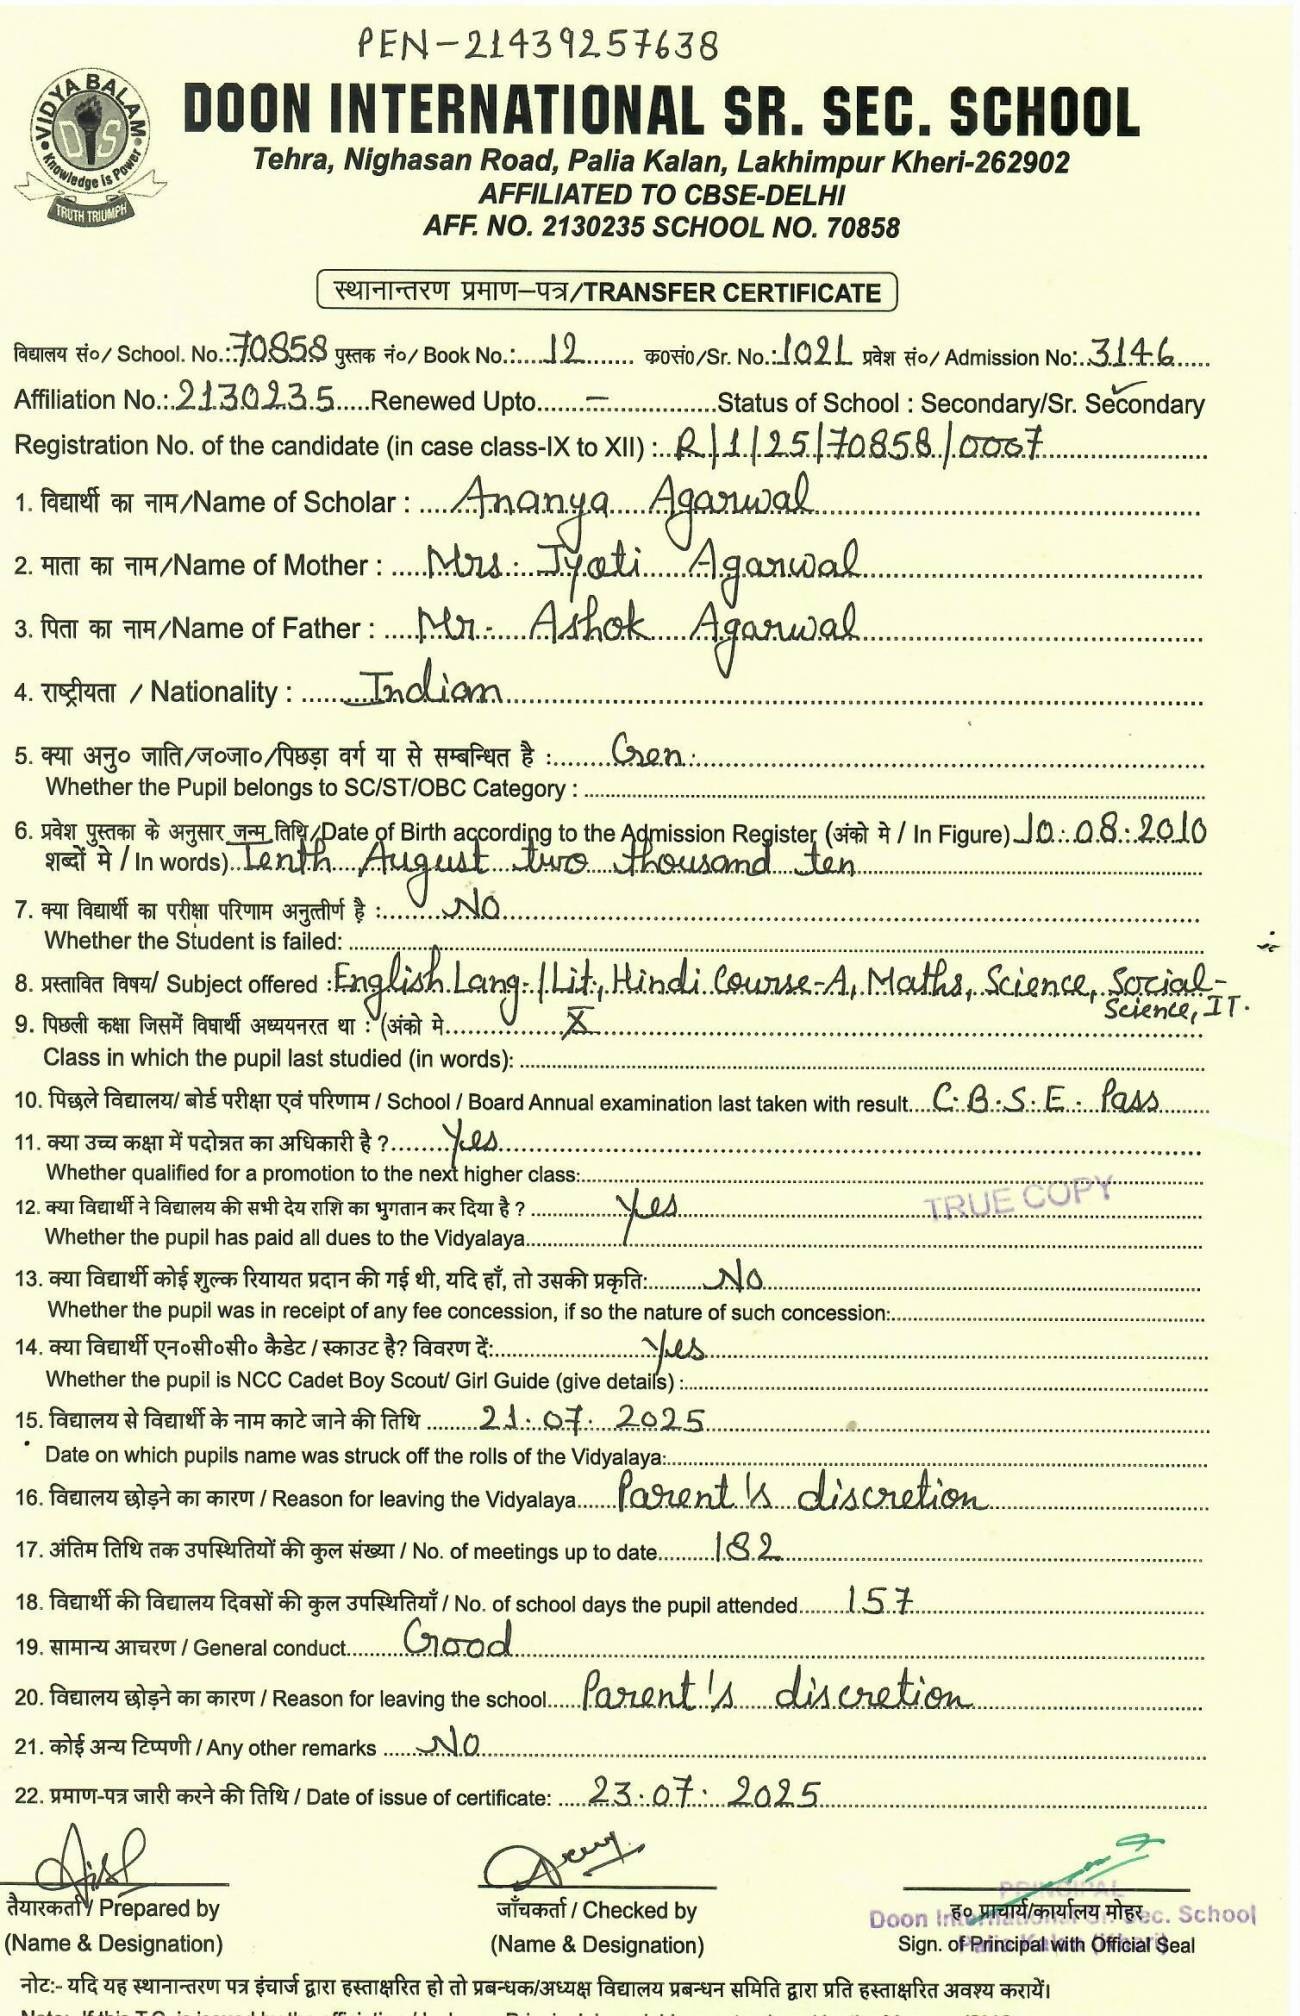 PEN-21439257638
VIDYA BALAM
DIS
Knowledge is Power
TRUTH TRIUMPH
DOON INTERNATIONAL SR. SEC. SCHOOL
Tehra, Nighasan Road, Palia Kalan, Lakhimpur Kheri-262902
AFFILIATED TO CBSE-DELHI
AFF. NO. 2130235 SCHOOL NO. 70858
स्थानान्तरण प्रमाण–पत्र/TRANSFER CERTIFICATE
विद्यालय सं०/ School. No.:70858 पुस्तक नं०/ Book No.:....12........ क०सं०/Sr. No.:1021 प्रवेश सं०/ Admission No:..3146.....
Affiliation No.:.2130235.....Renewed Upto.......–...............Status of School : Secondary/Sr. Secondary
Registration No. of the candidate (in case class-IX to XII) :..R/1/25/70858/0007
1. विद्यार्थी का नाम/Name of Scholar : ....Ananya Agarwal
2. माता का नाम/Name of Mother : .....Mrs. Jyoti Agarwal
3. पिता का नाम/Name of Father : ....Mr. Ashok Agarwal
4. राष्ट्रीयता / Nationality : ......Indian
5. क्या अनु० जाति/ज०जा०/पिछड़ा वर्ग या से सम्बन्धित है :.......Gen.
Whether the Pupil belongs to SC/ST/OBC Category :
6. प्रवेश पुस्तका के अनुसार जन्म तिथि/Date of Birth according to the Admission Register (अंको मे / In Figure) 10.08.2010
शब्दों मे / In words)..Tenth August two thousand ten
7. क्या विद्यार्थी का परीक्षा परिणाम अनुत्तीर्ण है :.......NO
Whether the Student is failed:
8. प्रस्तावित विषय/ Subject offered :English Lang./Lit., Hindi Course-A, Maths, Science, Social-
Science, IT.
9. पिछली कक्षा जिसमें विषार्थी अध्ययनरत था : (अंको मे..............X
Class in which the pupil last studied (in words):
10. पिछले विद्यालय/ बोर्ड परीक्षा एवं परिणाम / School / Board Annual examination last taken with result....C.B.S.E. Pass
11. क्या उच्च कक्षा में पदोन्नत का अधिकारी है ?........Yes
Whether qualified for a promotion to the next higher class:
12. क्या विद्यार्थी ने विद्यालय की सभी देय राशि का भुगतान कर दिया है ? ............Yes
TRUE COPY
Whether the pupil has paid all dues to the Vidyalaya
13. क्या विद्यार्थी कोई शुल्क रियायत प्रदान की गई थी, यदि हाँ, तो उसकी प्रकृति:........No
Whether the pupil was in receipt of any fee concession, if so the nature of such concession:
14. क्या विद्यार्थी एन०सी०सी० कैडेट / स्काउट है? विवरण दें:....................Yes
Whether the pupil is NCC Cadet Boy Scout/ Girl Guide (give details) :
15. विद्यालय से विद्यार्थी के नाम काटे जाने की तिथि ........21.07.2025
Date on which pupils name was struck off the rolls of the Vidyalaya:
16. विद्यालय छोड़ने का कारण / Reason for leaving the Vidyalaya.....Parent's discretion
17. अंतिम तिथि तक उपस्थितियों की कुल संख्या / No. of meetings up to date........182
18. विद्यार्थी की विद्यालय दिवसों की कुल उपस्थितियाँ / No. of school days the pupil attended......157
19. सामान्य आचरण / General conduct.........Good
20. विद्यालय छोड़ने का कारण / Reason for leaving the school.....Parent's discretion
21. कोई अन्य टिप्पणी / Any other remarks ......NO
22. प्रमाण-पत्र जारी करने की तिथि / Date of issue of certificate: ....23.07.2025
तैयारकर्ता / Prepared by
जाँचकर्ता / Checked by
PRINCIPAL
ह० प्राचार्य/कार्यालय मोहर
Doon International Sr. Sec. School
(Name & Designation)
(Name & Designation)
Sign. of Principal with Official Seal
Palia Kalan (Kheri)
नोट:- यदि यह स्थानान्तरण पत्र इंचार्ज द्वारा हस्ताक्षरित हो तो प्रबन्धक/अध्यक्ष विद्यालय प्रबन्धन समिति द्वारा प्रति हस्ताक्षरित अवश्य करायें।